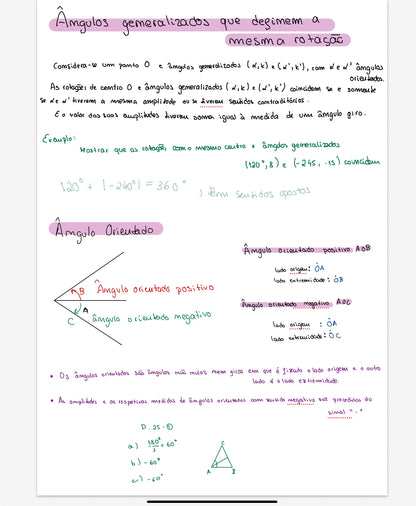 Ângulos generalizados que definem a
mesma rotação
Considera-se um ponto O e ângulos generalizados (α,k) e (α',k'), com α e α' ângulos
orientados.
As rotações de centro O e ângulos generalizados (α,k) e (α',k') coincidem se e somente
se α e α' tiverem a mesma amplitude ou se tiverem sentidos contraditórios.
E o valor das suas amplitudes tiverem soma igual à medida de um ângulo giro.
Exemplo:
Mostrar que as rotações com o mesmo centro e ângulos generalizados
(120°, 8) e (-245, -15) coincidem
120° + |-240°| = 360° ; têm sentidos opostos
Ângulo Orientado
Ângulo orientado positivo AOB
lado origem: ȮA
lado extremidade: ȮB
B Ângulo orientado positivo
A
C ângulo orientado negativo
Ângulo orientado negativo AOC
lado origem : ȮA
lado extremidade: ȮC
• Os ângulos orientados são ângulos não nulos nem giros em que é fixado o lado origem e o outro
lado é o lado extremidade.
• As amplitudes e as respetivas medidas de ângulos orientados com sentido negativo são precedidos do
sinal "-"
a) 180°/3 = 60°
b) -60°
c) -60°
C
A B